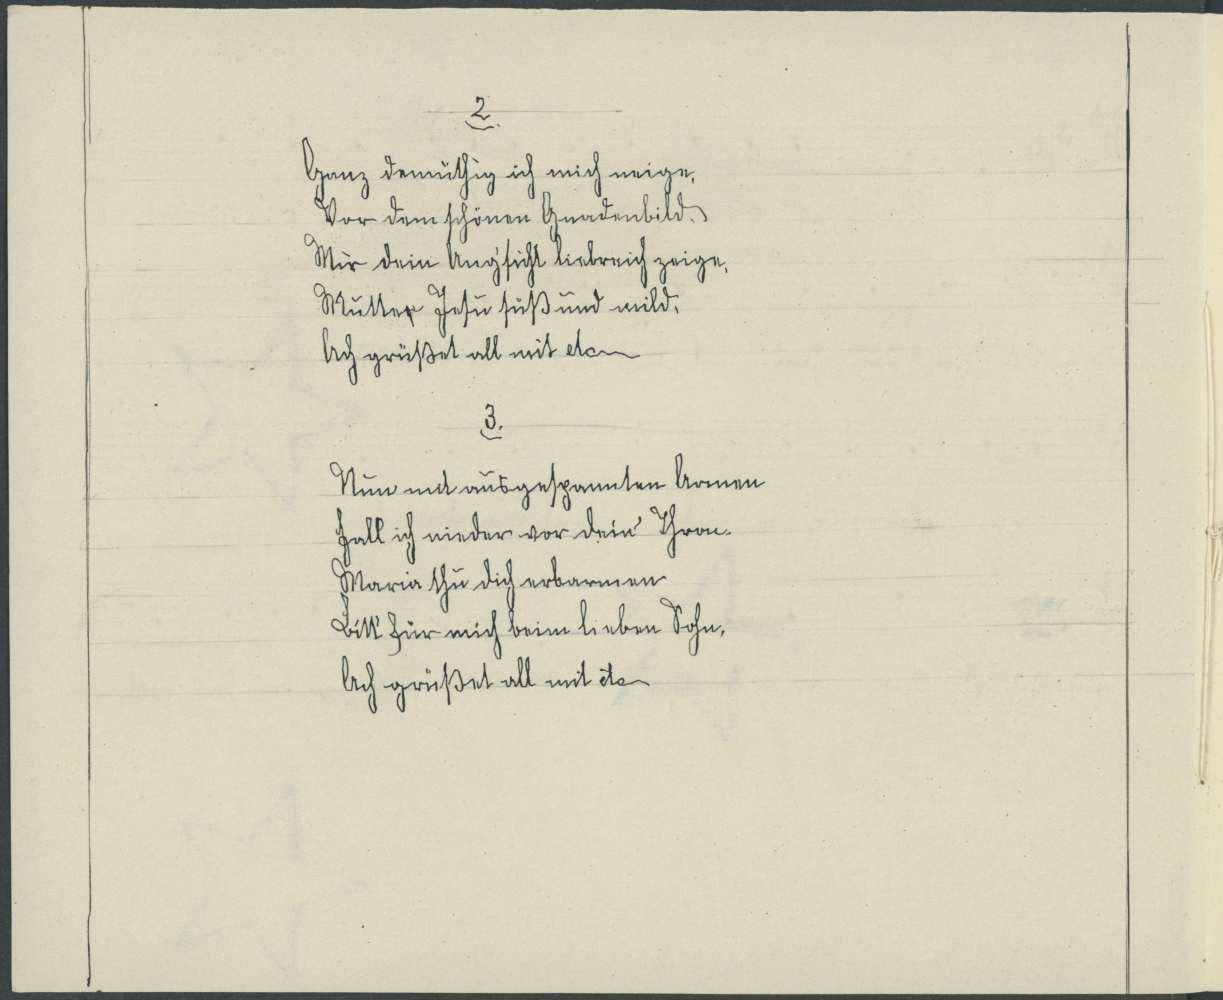 2
Ganz demüthig ich mich neige,
Vor dem schönen Gnadenbild.
Mir dein Ang'sicht liebreich zeige,
Mutter Jesu süß und mild.
Ach grüßet all mit etc
3.
Nun mit ausgespannten Armen
Fall ich nieder vor dein' Thron.
Maria thu dich erbarmen
Bitt' für mich beim lieben Sohn,
Ach grüßet all mit etc